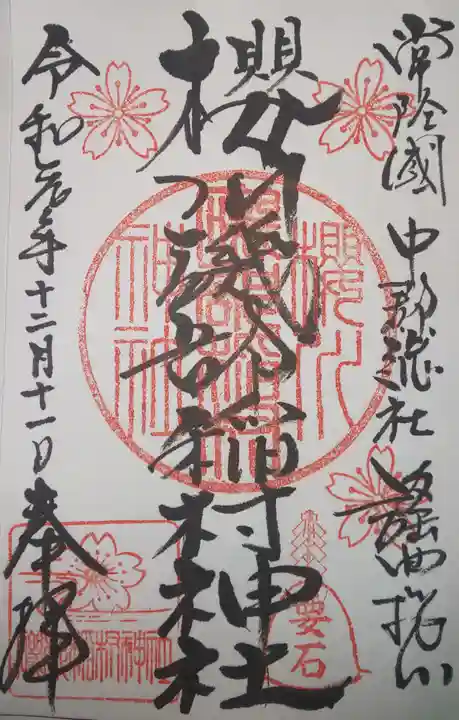 常陸國 中郡總社 謡曲桜川
櫻川磯部稲村神社
令和元年十二月十一日 奉拝
要石